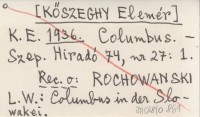 [KŐSZEGHY Elemér]
K. E. 1936. Columbus. –
Szep. Hiradó 74, nr 27: 1.
Rec. o: ROCHOWANSKI
L. W.: Columbus in der Slo-
wakei.